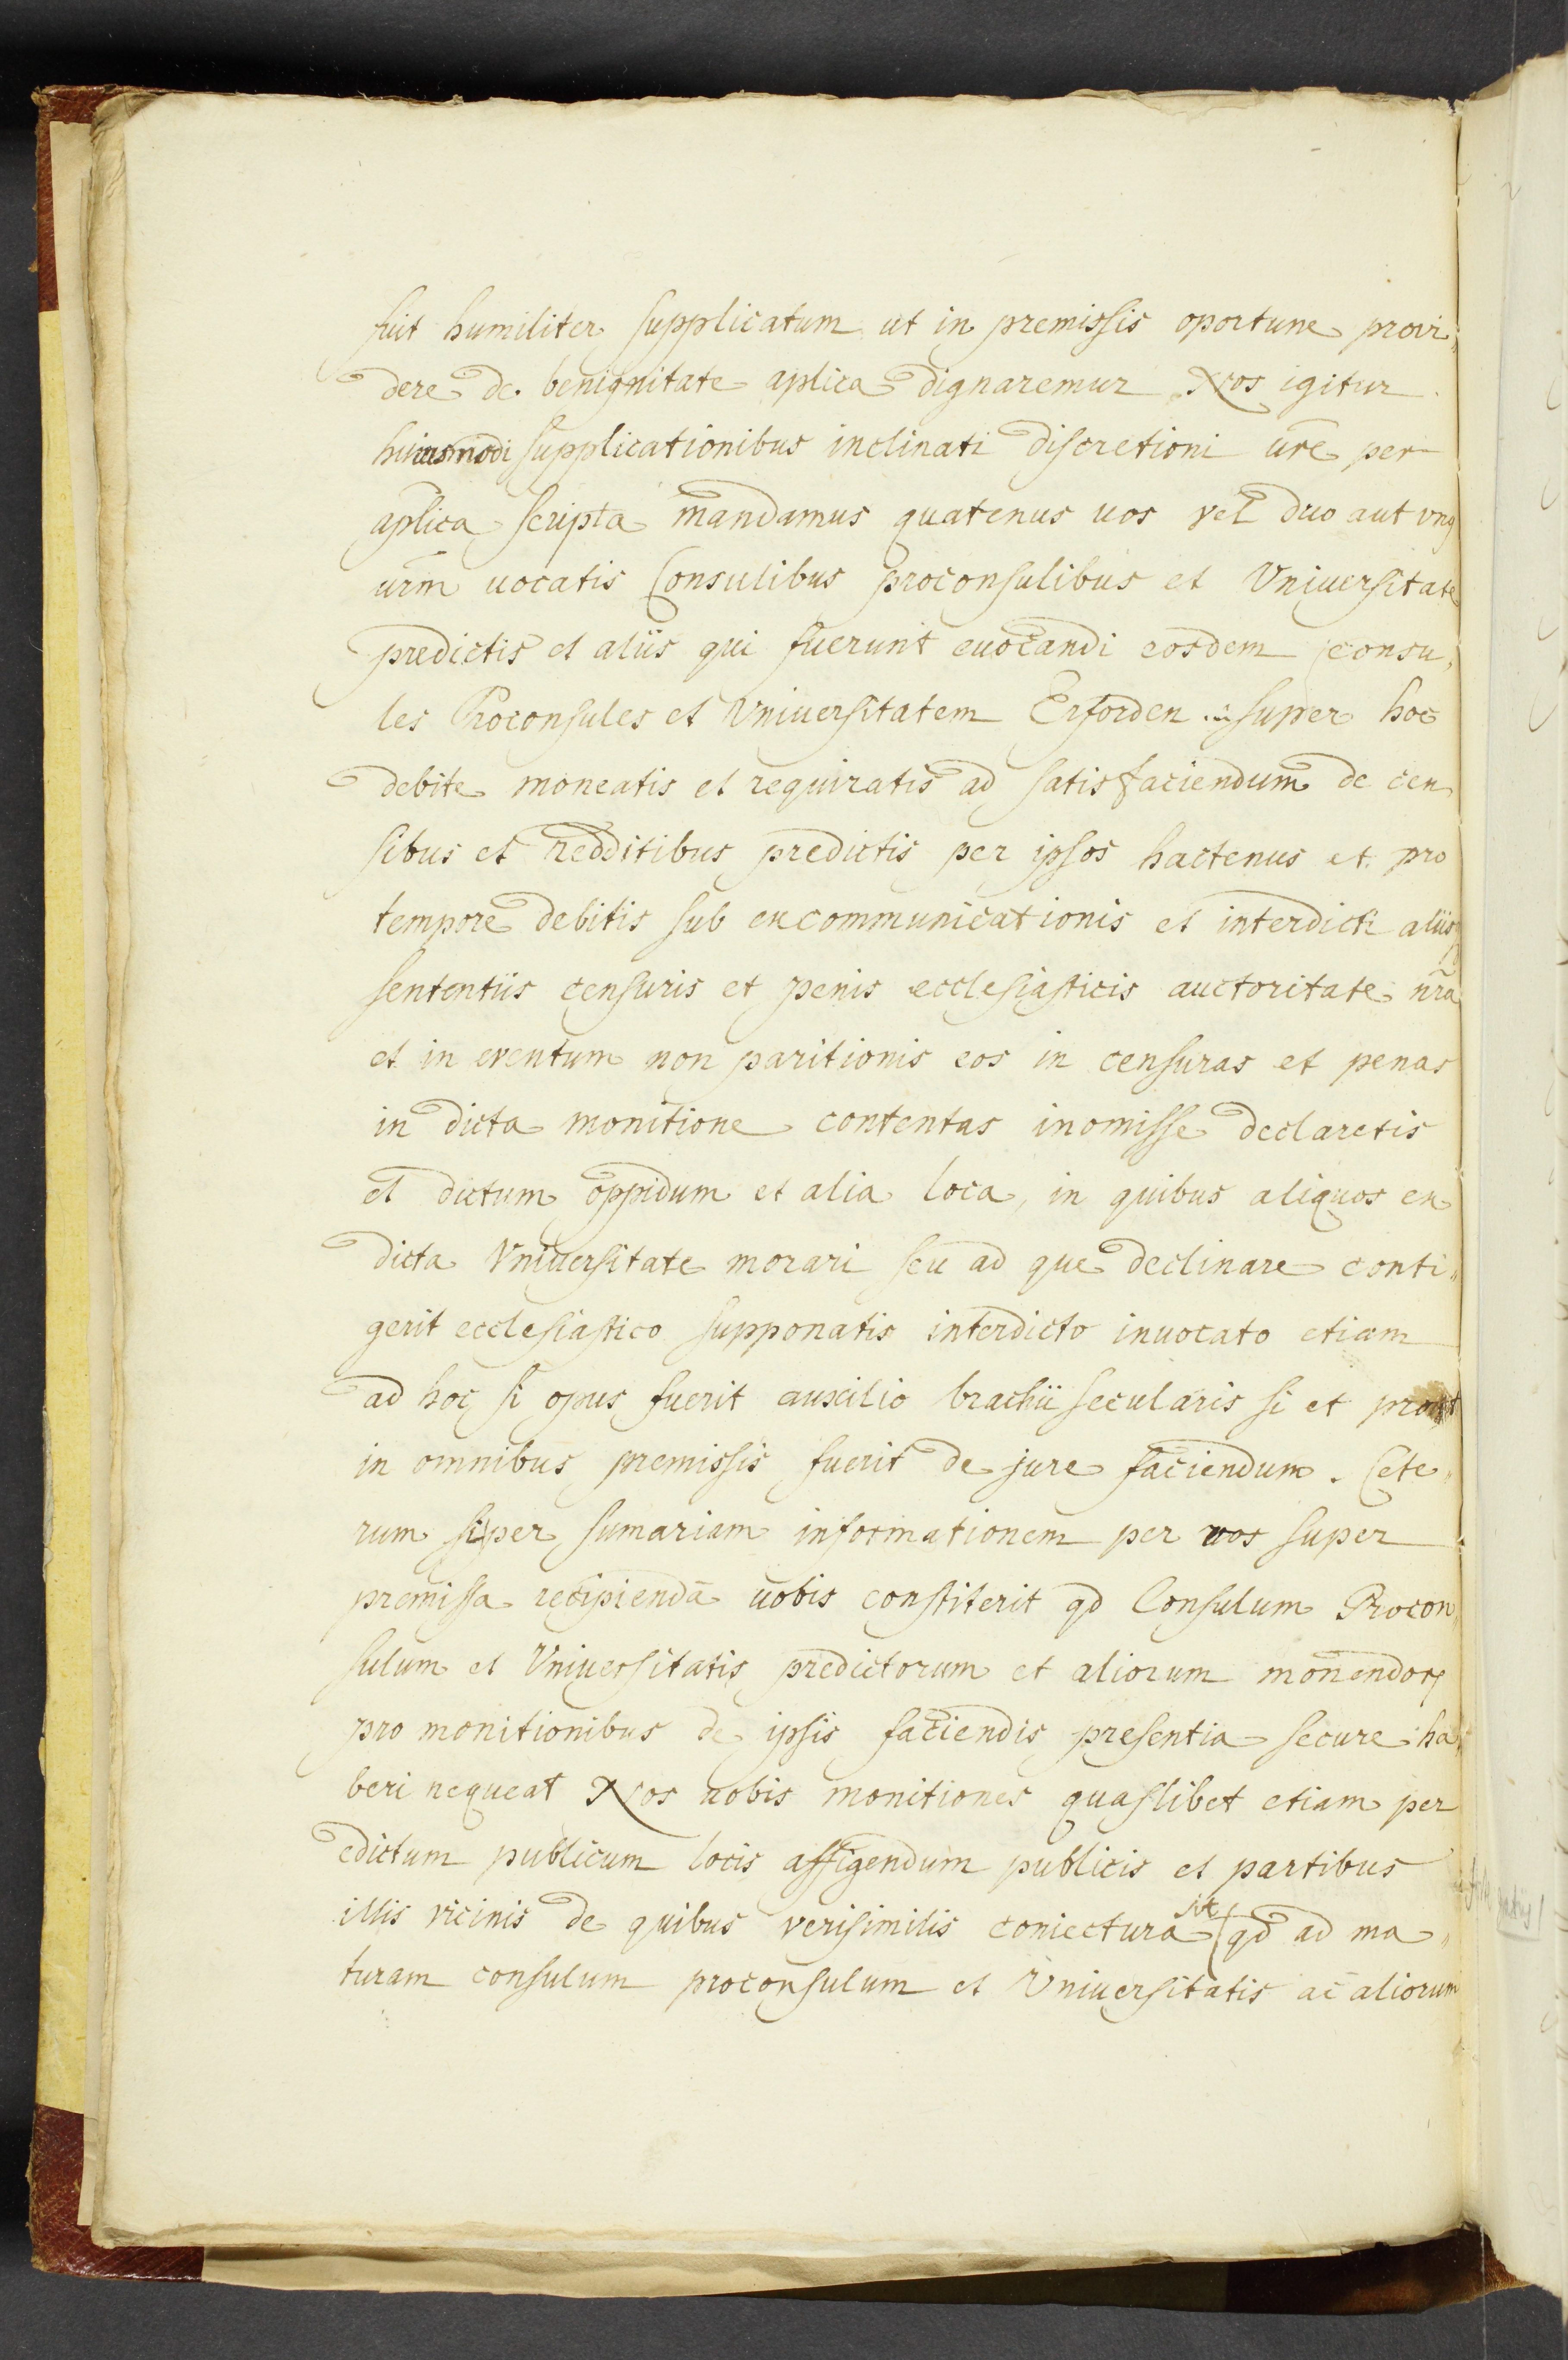 fuit humiliter supplicatum ut in premissis oportune provi„
dere de benignitate aplica dignaremur Nos igitur
huiusmodi supplicationibus inclinati discretioni ure per
aplica scripta mandamus quatenus uos vel duo aut vnq
urm uocatis Consulibus proconsulibus et Vniuersitate
predictis et aliis qui fuerunt euocandi eosdem consu„
les Proconsules et Vniuersitatem Erforden super hoc
debite moneatis et requiratis ad satisfaciendum de cen
sibus et redditibus predictis per ipsos hactenus et pro
tempore debitis sub excommunicationis et interdicti aliisq
sententiis censuris et penis ecclesiasticis auctoritate nra
et in eventum non paritionis eos in censuras et penas
in dicta monitione contentas inomisse declaretis
et dictum oppidum et alia loca, in quibus aliquos ex
dicta Vniuersitate morari seu ad que declinare conti„
gerit ecclesiastico supponatis interdicto inuocato etiam
ad hoc si opus fuerit auxilio brachii secularis si et prout
in omnibus premissis fuerit de jure faciendum. Cete„
rum si per sumariam informationem per vos super
premissa recipiendā uobis constiterit qd Consulum Procon„
sulum et Vniuersitatis predictorum et aliorum monendor
pro monitionibus de ipsis faciendis presentia secure ha„
beri nequeat Nos uobis monitiones quaslibet etiam per
edictum publicum locis affigendum publicis et partibus
illis vicinis de quibus verisimilis coniectura sit qd ad ma„
turam consulum proconsulum et Vniuersitatis ac aliorum